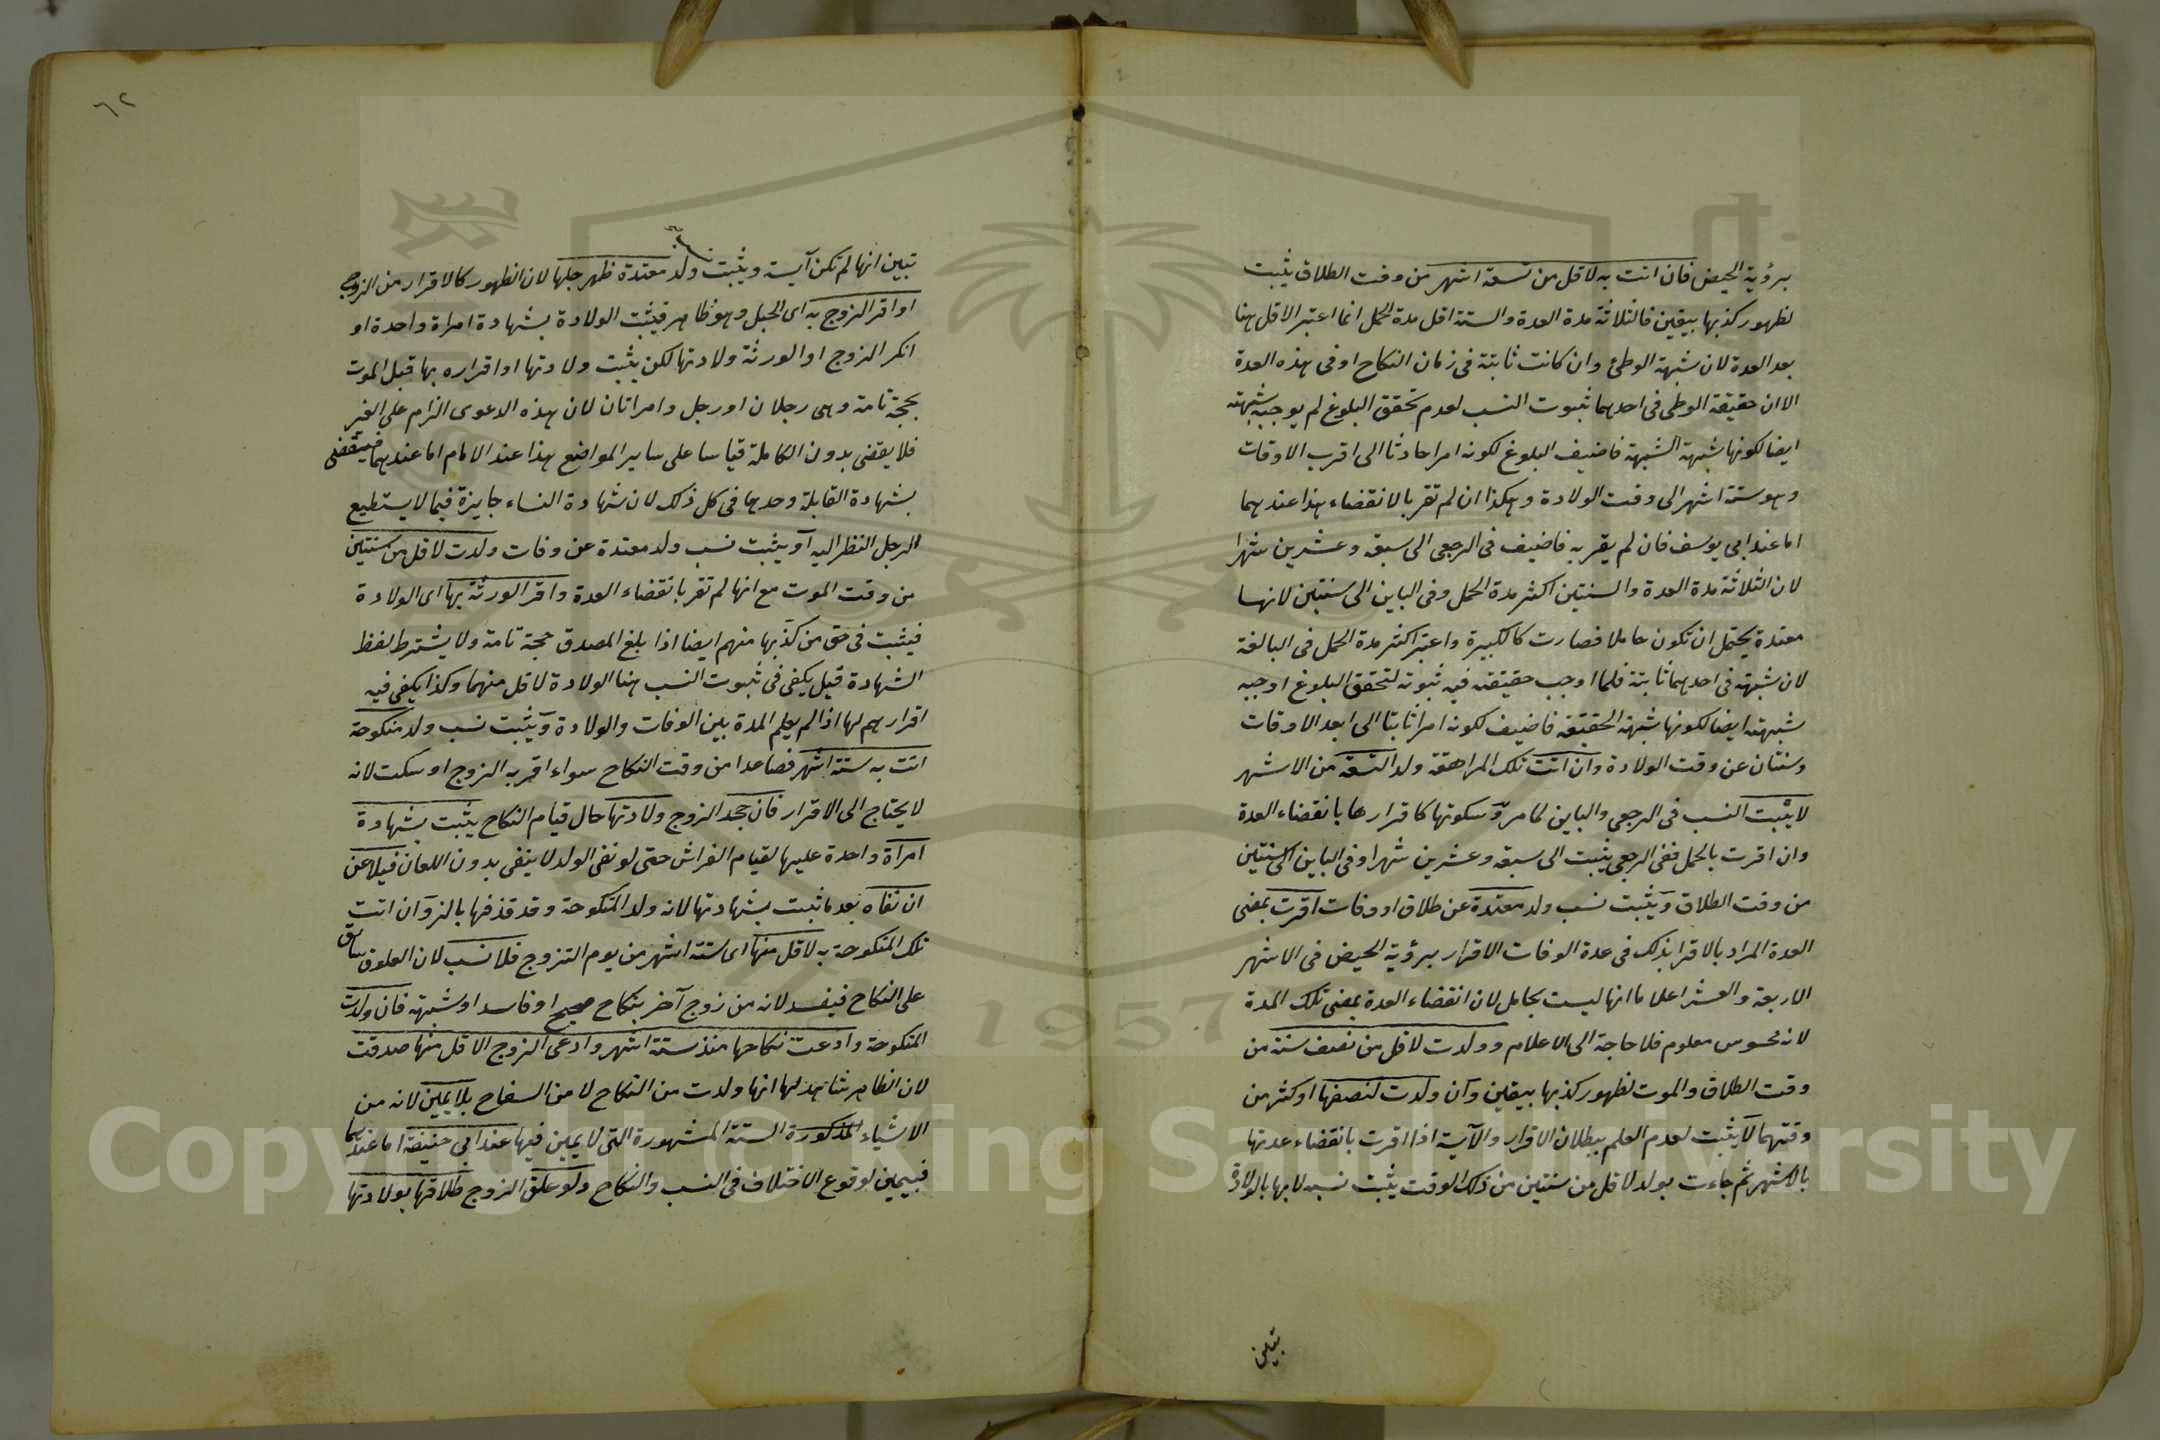 برؤية الحيض فان اتت به لاقل من تسعة اشهر من وقت الطلاق يثبت
لظهور كذبها بيقين فالثلاثة مدة العدة والستة اقل مدة الحمل انما اعتبر الاقل هنا
بعد العدة لان شبهة الوطئ وان كانت ثابتة فى زمان النكاح او فى هذه العدة
الا ان حقيقة الوطى فى احدهما ثبوت النسب لعدم تحقق البلوغ لم يوجبه شبهته
ايضا لكونها شبهة الشبهة فاضيف البلوغ لكونه امرا حادثا الى اقرب الاوقات
وهو ستة اشهر الى وقت الولادة وهكذا ان لم تقر بالانقضاء هذا عندهما
اما عند ابي يوسف فان لم يقر به فاضيف فى الرجعى الى سبعة وعشرين شهرا
لان الثلاثة مدة العدة والسنتين اكثر مدة الحمل وفى الباين الى سنتين لانها
معتدة يحتمل ان تكون حاملا فصارت كالكبيرة واعتبر اكثر مدة الحمل فى البالغة
لان شبهته فى احدهما ثابتة فلما اوجب حقيقته فيه ثبوته لتحقق البلوغ اوجبه
شبهته ايضا لكونها شبهة الحقيقة فاضيف لكونه امرا ثابتا الى ابعد الاوقات
وسنتان عن وقت الولادة وان اتت تلك المراهقة ولد التسعة من الاشهر
لا يثبت النسب فى الرجعى والباين لما مر وسكوتها كاقرارها بانقضاء العدة
وان اقرت بالحمل ففى الرجعى يثبت الى سبعة وعشرين شهرا وفى الباين الى سنتين
من وقت الطلاق ويثبت نسب ولد معتدة عن طلاق او وفات اقرت بمضى
العدة المراد بالاقرار بذلك فى عدة الوفات الاقرار برؤية الحيض فى الاشهر
الاربعة والعشر اعلاما انها ليست بحامل لان انقضاء العدة بمضى تلك المدة
لانه محسوس معلوم فلا حاجة الى الاعلام وولدت لاقل من نصف سنة من
وقت الطلاق والموت لظهور كذبها بيقين وان ولدت لنصفها او كثر من
وقتهما لا يثبت لعدم العلم ببطلان الاقرار والآيسة اذا اقرت بانقضاء عدتها
بالاشهر ثم جاءت بولد لاقل من سنتين من ذلك الوقت يثبت نسبه لا بها بالولادة
تبين
٦٢
تبين انها لم تكن آيسة ويثبت ولد معتدة ظهر حبلها لان الظهور كالاقرار من الزوج
او اقر الزوج به اى الحبل وهو ظاهر فيثبت الولادة بشهادة امراة واحدة او
انكر الزوج او الورثة ولادتها لكن يثبت ولادتها او اقراره بها قبل الموت
بحجة تامة وهى رجلان او رجل وامراتان لان هذه الدعوى الزام على الغير
فلا يقضى بدون الكاملة قياسا على ساير المواضع هذا عند الامام اما عندهما فيقضى
بشهادة القابلة وحدها فى كل ذلك لان شهادة النساء جايزة فيما لا يستطيع
الرجل النظر اليه او يثبت نسب ولد معتدة عن وفات ولدت لاقل من سنتين
من وقت الموت مع انها لم تقر بانقضاء العدة واقر الورثة بها اى الولادة
فيثبت فى حق من كذبها منهم ايضا اذا بلغ المصدق حجة تامة ولا يشترط لفظ
الشهادة قيل يكفى فى ثبوت النسب هنا الولادة لاقل منهما وكذا يكفى فيه
اقرارهم لها اذا لم يعلم المدة بين الوفات والولادة ويثبت نسب ولد منكوحة
اتت به ستة اشهر فصاعدا من وقت النكاح سواء اقر به الزوج او سكت لانه
لا يحتاج الى الاقرار فان جحد الزوج ولادتها حال قيام النكاح يثبت بشهادة
امراة واحدة عليها لقيام الفراش حتى لو نفى الولد لا ينفى بدون اللعان فيلاعن
ان نفاه بعد ما ثبت بشهادتها لانه ولد المنكوحة وقد قذفها بالزنا وان اتت
تلك المنكوحة به لاقل منها اى ستة اشهر من يوم التزوج فلا نسب لان العلوق سابق
على النكاح فيفسد لانه من زوج آخر بنكاح صحيح او فاسد او شبهة فان ولدت
المنكوحة وادعت نكاحها منذ ستة اشهر وادعى الزوج الاقل منها صدقت
لان الظاهر شاهد لها انها ولدت من النكاح لا من السفاح بلا يمين لانه من
الاشياء المذكورة الستة المشهورة التى لا يمين فيها عند ابي حنيفة اما عندهما
فبيمين لوقوع الاختلاف فى النسب والنكاح ولو علق الزوج طلاقها بولادتها
1957
Copyright © King Saud University